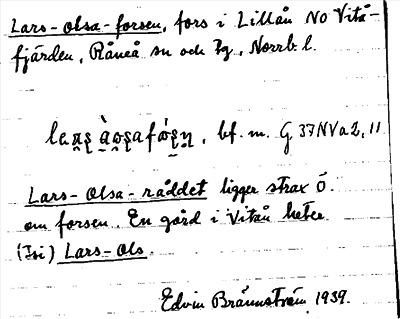 Lars-Olsa-forsen, fors i Lillån NO Vitå-
fjärden, Råneå sn och tg, Norrb. l.
bf. m. G 37 NV a 2, 11
Lars-Olsa-råddet ligger strax Ö.
om forsen. En gård i Vitån heter
(Isi) Lars-Ols.
Edvin Brännström 1939.